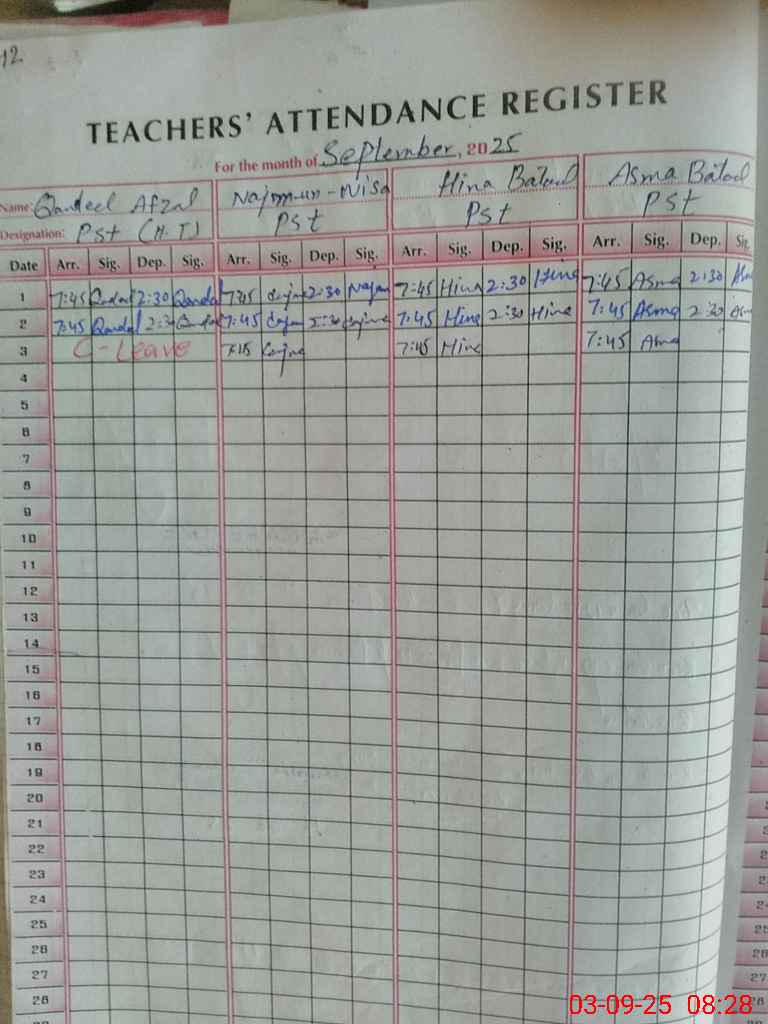 12
TEACHERS' ATTENDANCE REGISTER
For the month of September, 2025
Name: Qandeel Afzal Najmun-Nisa Hina Batool Asma Batool
Designation: Pst (H.T) Pst Pst Pst
Date Arr. Sig. Dep. Sig. Arr. Sig. Dep. Sig. Arr. Sig. Dep. Sig. Arr. Sig. Dep. Sig.
1 7:45 2:30 7:45 2:30 7:45 Hina 2:30 Hina 7:45 Asma 2:30
2 7:45 2:30 7:45 2:30 7:45 Hina 2:30 Hina 7:45 Asma 2:30
3 C-Leave 7:45 Hina 7:45 Asma
4
5
6
7
8
9
10
11
12
13
14
15
16
17
18
19
20
21
22
23
24
25
26
27
28
03-09-25 08:28